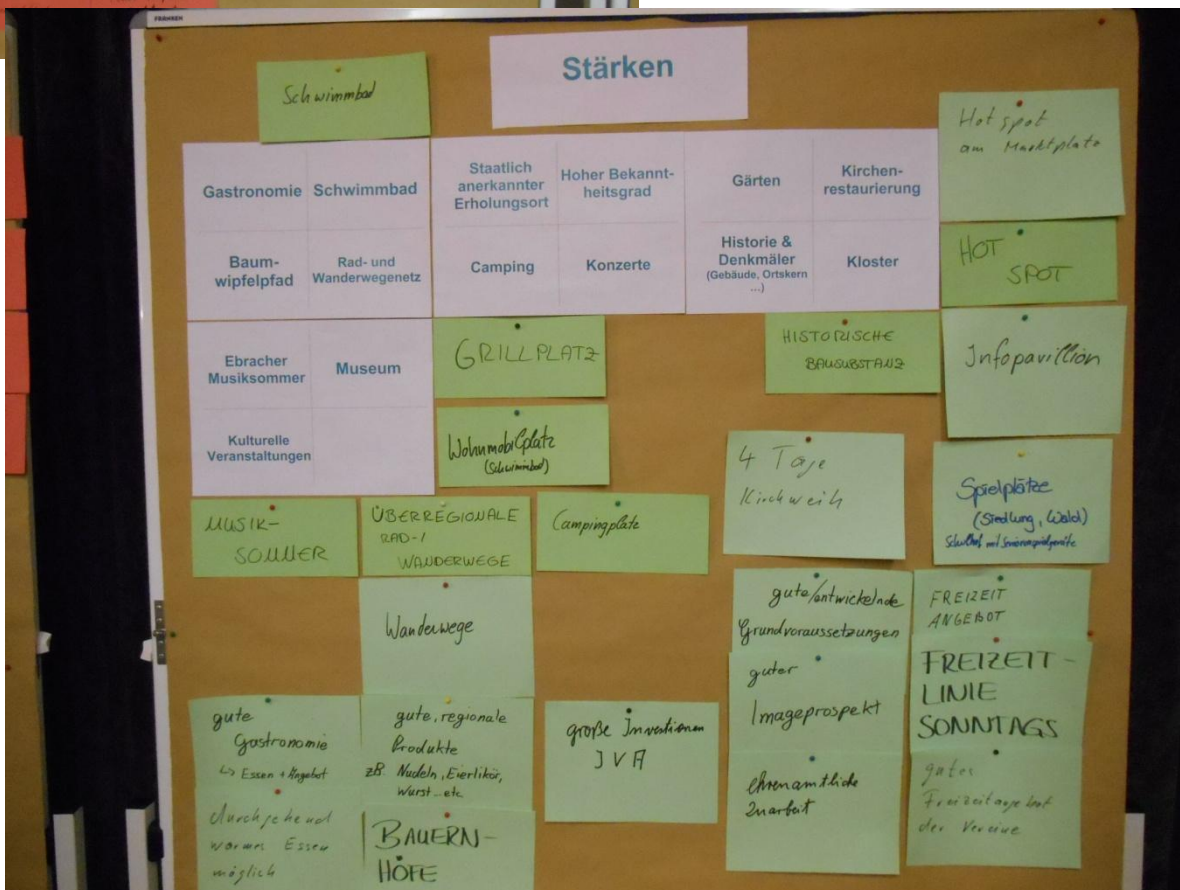 FRANKEN
Stärken
Schwimmbad
Hotspot
am Marktplatz
Gastronomie
Schwimmbad
Baum-
wipfelpfad
Rad- und
Wanderwegenetz
Staatlich
anerkannter
Erholungsort
Hoher Bekannt-
heitsgrad
Camping
Konzerte
Gärten
Kirchen-
restaurierung
Historie &
Denkmäler
(Gebäude, Ortskern
...)
Kloster
HOT
SPOT
Ebracher
Musiksommer
Museum
Kulturelle
Veranstaltungen
GRILLPLATZ
HISTORISCHE
BAUSUBSTANZ
Infopavillion
Wohnmobilplatz
(Schwimmbad)
4 Tage
Kirchweih
Spielplätze
(Siedlung, Wald)
Schulhof mit Seniorenspielgeräte
MUSIK-
SOMMER
ÜBERREGIONALE
RAD-/
WANDERWEGE
Campingplatz
Wanderwege
gute/entwickelnde
Grundvoraussetzungen
FREIZEIT
ANGEBOT
guter
Imageprospekt
FREIZEIT-
LINIE
SONNTAGS
gute
Gastronomie
↳ Essen + Angebot
gute, regionale
Produkte
zB. Nudeln, Eierlikör,
Wurst...etc.
große Investionen
JVA
ehrenamtliche
Inarbeit
gutes
Freizeitangebot
der Vereine
durchgehend
warmes Essen
möglich
BAUERN-
HÖFE